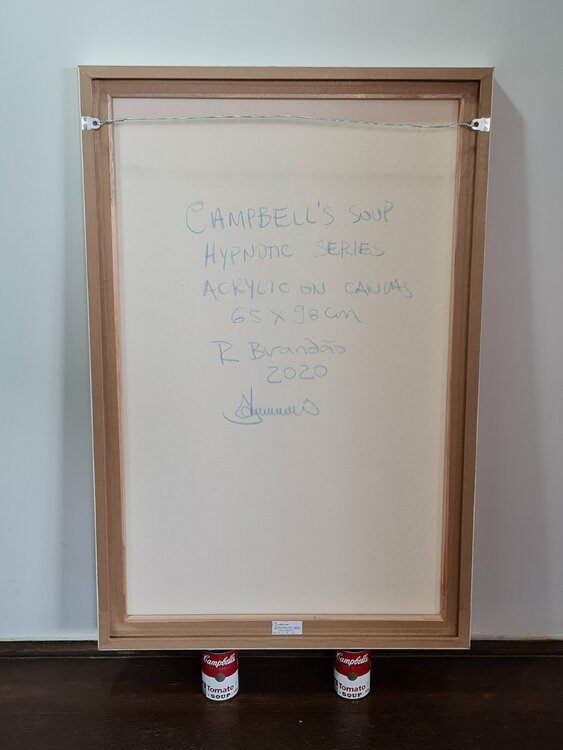 CAMPBELL'S SOUP
HYPNOTIC SERIES
ACRYLIC ON CANVAS
68 X 98 cm
R Brandão
2020
Campbell's
Tomato
SOUP
Campbell's
Tomato
SOUP